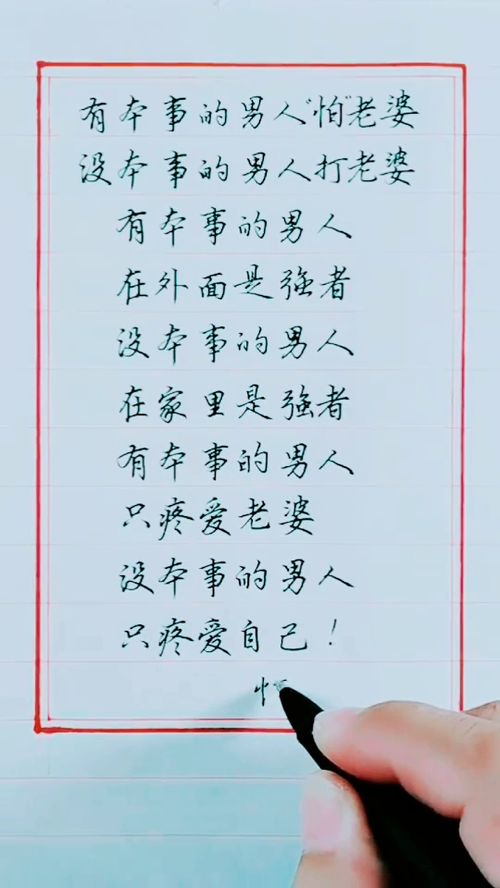 有本事的男人"怕"老婆
没本事的男人打老婆
有本事的男人
在外面是强者
没本事的男人
在家里是强者
有本事的男人
只疼爱老婆
没本事的男人
只疼爱自己！